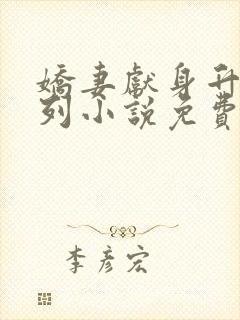 嬌妻獻身升
列小說免費
李彥宏